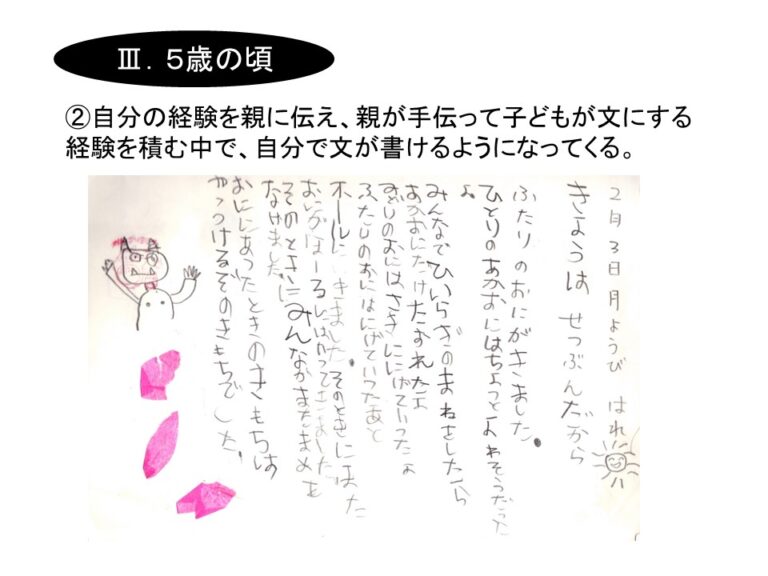 Ⅲ．５歳の頃
②自分の経験を親に伝え、親が手伝って子どもが文にする
経験を積む中で、自分で文が書けるようになってくる。
２月３日月ようび はれ
きょうは せつぶんだから
ふたりのおにがきました。
ひとりのあかおにはちょっとよわそうだった
よ
みんなでひいらぎのまねをしたら
あかおにだけたおれたよ
おにはさきににげていったよ
ふたりのおにはにげていったあと
ホールにいきました。そのときにまた
おにがほーるに
そのときにみんながまたまめを
なげました。
おににあったときのきもちは
やっつけるぞのきもちでした。